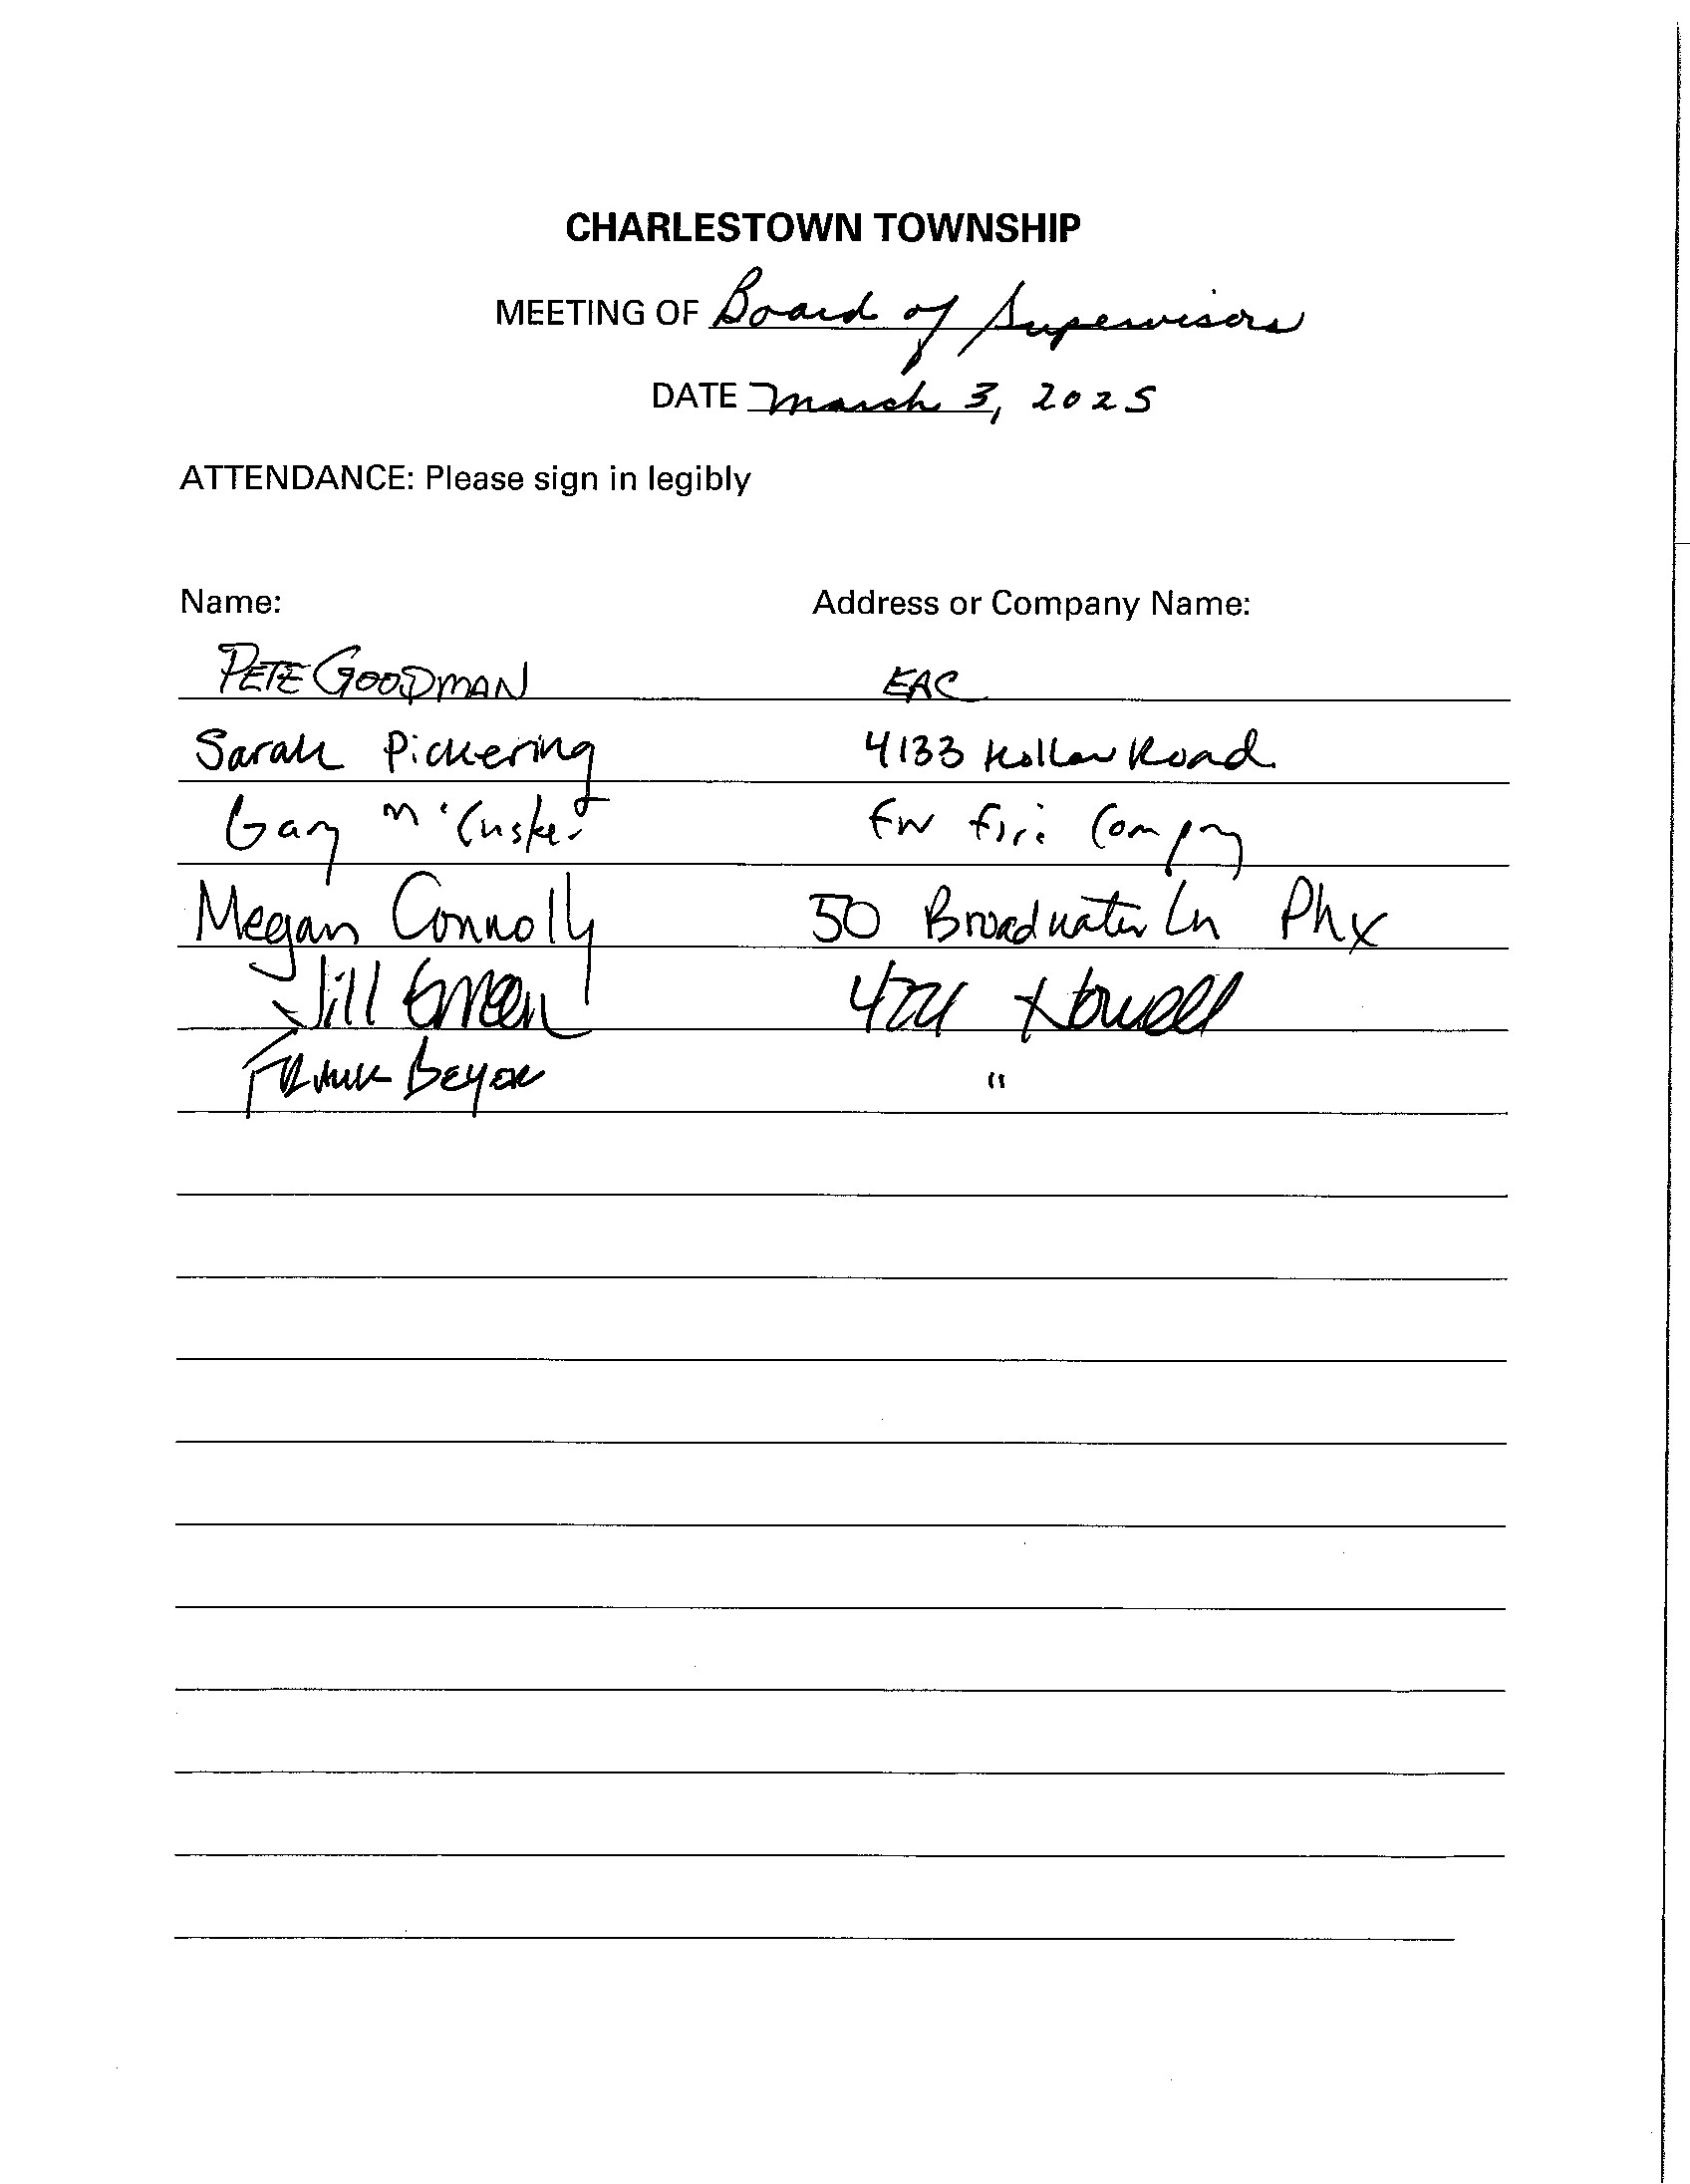 CHARLESTOWN TOWNSHIP
MEETING OF Board of Supervisors
DATE March 3, 2025
ATTENDANCE: Please sign in legibly
Name: Address or Company Name:
PETE GOODMAN EAC
Sarah Pickering 4133 Hollow Road
Gary McCusker EW Fire Company
Megan Connolly 50 Broadwater Ln Phx
Jill Green Howell
FRANK BEYER "